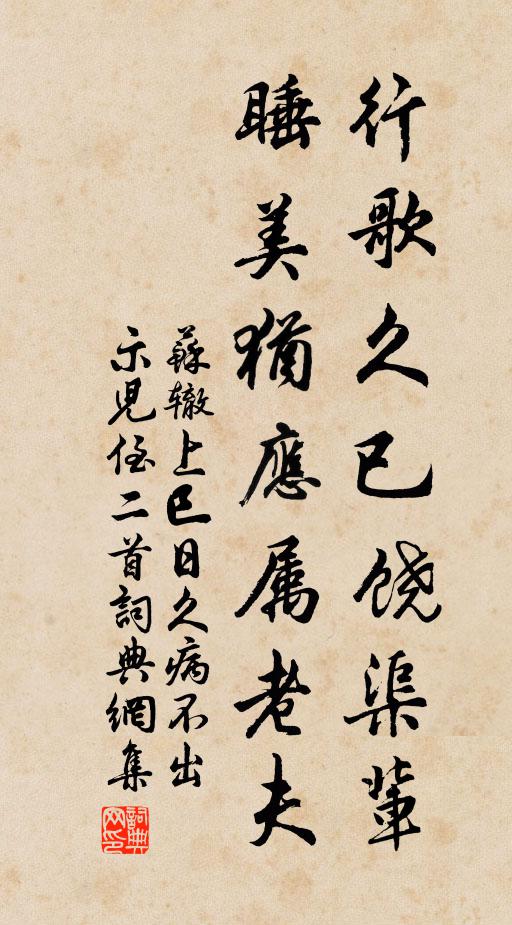 行歌久已饶渠辈
睡美犹應属老夫
蘇辙上巳日久病不出
示児侄二首詞典網集
詞典网印